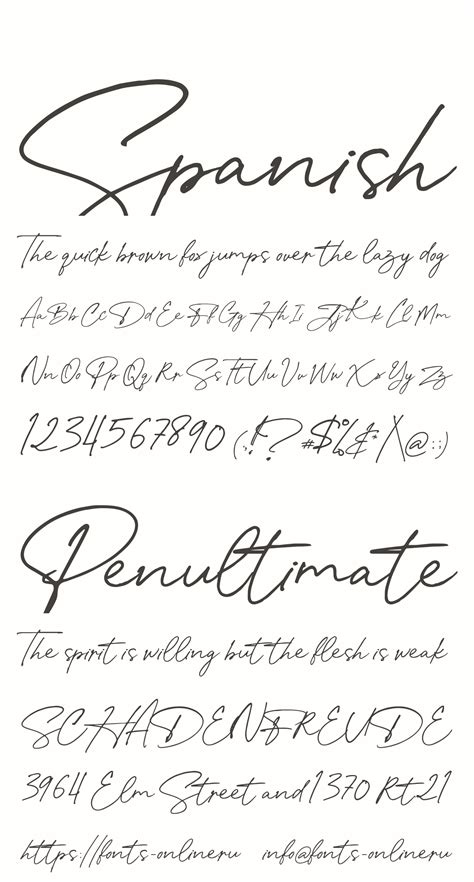 Spanish
The quick brown fox jumps over the lazy dog
Aa Bb Cc Dd Ee Ff Gg Hh Ii Jj Kk Ll Mm
Nn Oo Pp Qq Rr Ss Tt Uu Vv Ww Xx Yy Zz
1234567890 (.,!? #$%&* /\ @:;)
Penultimate
The spirit is willing but the flesh is weak
SCHADENFREUDE
3964 Elm Street and 1370 Rt.21
https://fonts-online.ru info@fonts-online.ru